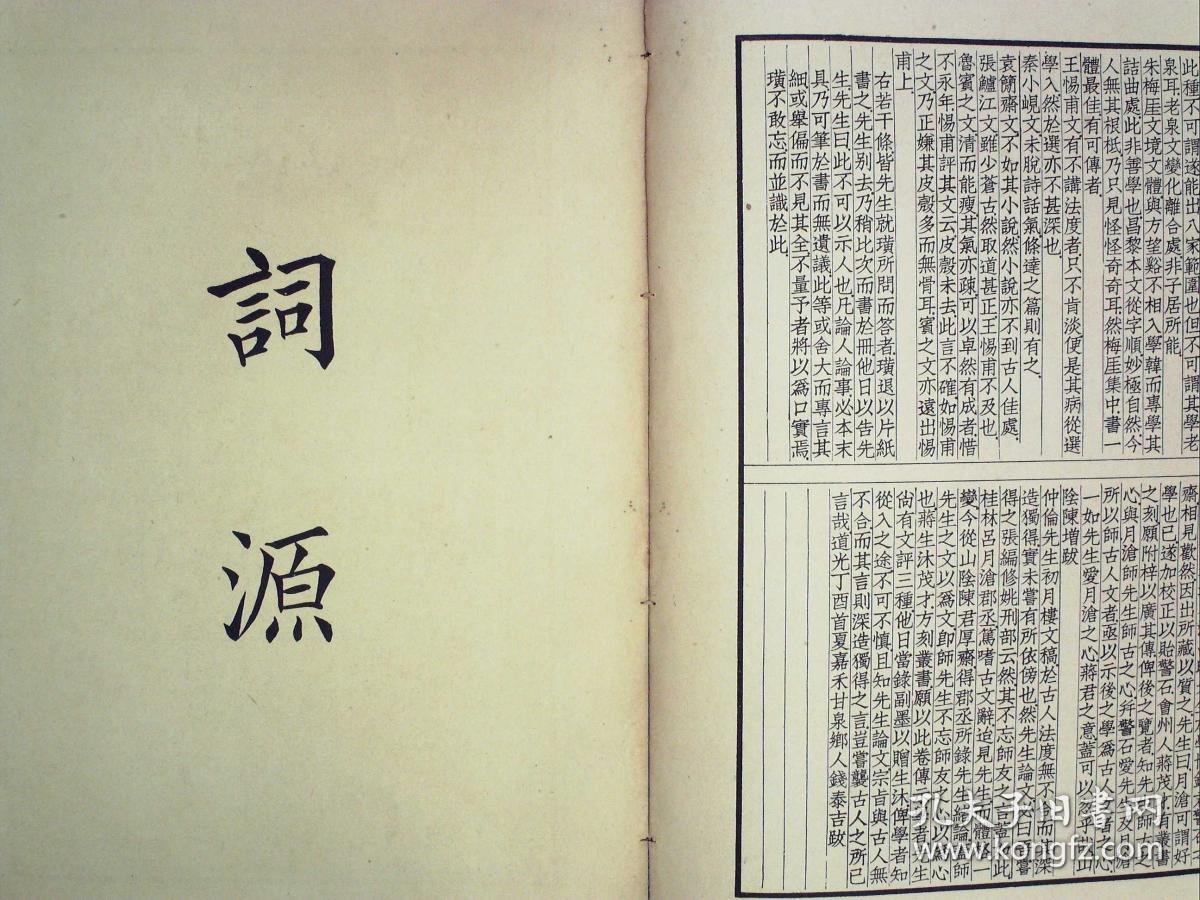 此種不可謂遂能出八家範圍也但不可謂其學老
泉耳老泉文變化離合處非子居所能
朱梅厓文境文體與方望谿不相入學韓而專學其
詰曲處此非善學也昌黎本文從字順妙極自然今
人無其根柢乃只見怪怪奇奇耳然梅厓集中書一
體最佳有可傳者
王惕甫文有不講法度者只不肯淡便是其病從選
學入然於選亦不甚深也
秦小峴文未脫詩話氣條達之篇則有之
袁簡齋文不如其小說然小說亦不到古人佳處
張鱸江文雖少蒼古然取道甚正王惕甫不及也
魯賓之文清而能瘦其氣亦疎可以卓然有成者惜
不永年惕甫評其文云皮殼未去此言不確如惕甫
之文乃正嫌其皮殼多而無骨耳賓之文亦遠出惕
甫上
右若干條皆先生就璜所問而答者璜退以片紙
書之先生别去乃稍比次而書於冊他日以告先
生先生曰此不可以示人也凡論人論事必本末
具乃可筆於書而無遺議此等或舍大而專言其
細或舉偏而不見其全不量予者將以爲口實焉
璜不敢忘而並識於此
齋相見歡然因出所藏以質之先生曰月滄可謂好
學也已遂加校正以貽警石會州人蔣茂才有叢書
之刻願附梓以廣其傳俾後之覽者知先生師古之
心與月滄師先生師古之心幷警石愛先生及月滄
所以師古人文者亟以示後之學爲古人文者之心
一如先生愛月滄之心蔣君之意蓋可以忽乎哉山
陰陳增跋
仲倫先生初月樓文稿於古人法度無不合而其深
造獨得實未嘗有所依傍也然先生論文必曰吾嘗
得之張編修姚刑部云然其不忘師友之言蓋如此
桂林呂月滄郡丞篤嗜古文辭追見先生而體格一
變今從山陰陳君厚齋得郡丞所錄先生緒論蓋師
先生之文以爲文即師先生不忘師友之心以爲心
也蔣生沐茂才方刻叢書願以此卷傳示學者先生
尙有文評三種他日當錄副墨以贈生沐俾學者知
從入之途不可不慎且知先生論文宗旨與古人無
不合而其言則深造獨得之言豈嘗襲古人之所已
言哉道光丁酉首夏嘉禾甘泉鄉人錢泰吉跋
詞
源
孔夫子旧書网
www.kongfz.com